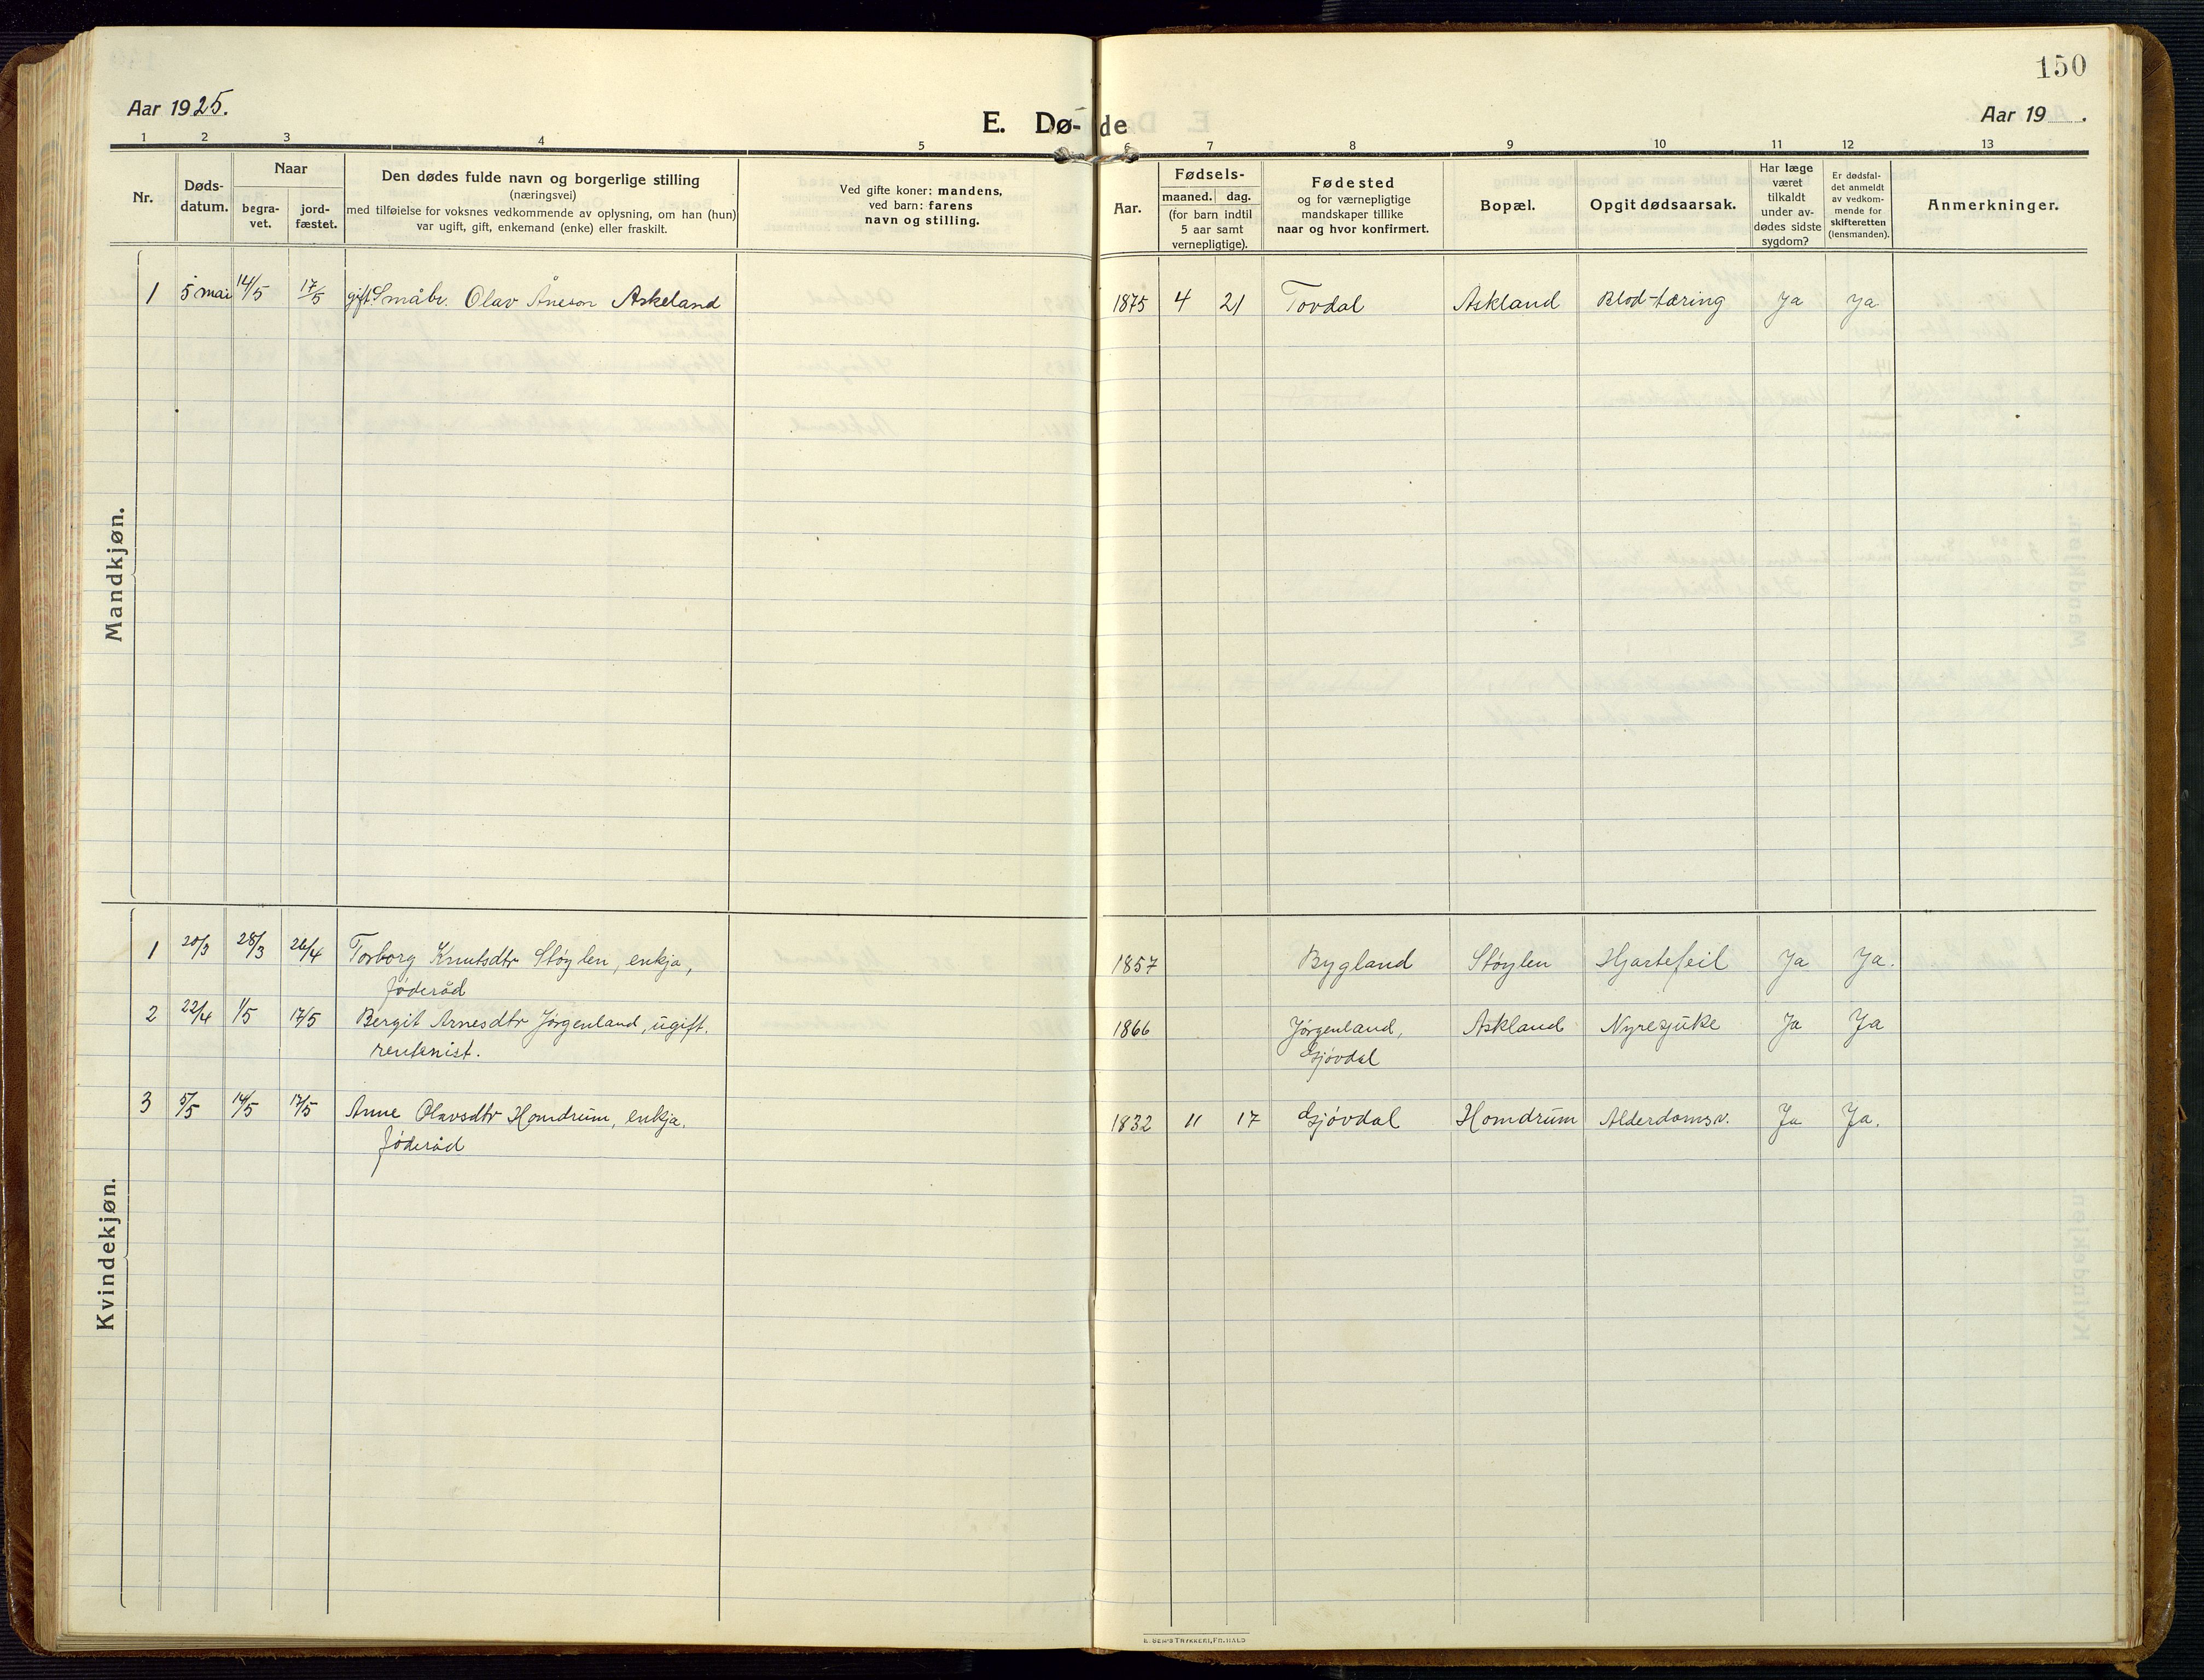 150
Aar 1925.
E. Dø- de
Aar 19 .
1 2 3 4 5 6 7 8 9 10 11 12 13
Nr.
Døds-
datum.
Naar
begra-
vet.
jord-
fæstet.
Den dødes fulde navn og borgerlige stilling
(næringsvei)
med tilføielse for voksnes vedkommende av oplysning, om han (hun)
var ugift, gift, enkemand (enke) eller fraskilt.
Ved gifte koner: mandens,
ved barn: farens
navn og stilling.
Aar.
Fødsels-
maaned. dag.
(for barn indtil
5 aar samt
vernepligtige).
Fødested
og for værnepligtige
mandskaper tillike
naar og hvor konfirmert.
Bopæl.
Opgit dødsaarsak.
Har læge
været
tilkaldt
under av-
dødes sidste
sygdom?
Er dødsfal-
det anmeldt
av vedkom-
mende for
skifteretten
(lensmanden).
Anmerkninger.
Mandkjøn.
1 5 mai 14/5 17/5 gift. Småbr. Olav Åneson Askeland 1875 4 21 Tovdal Askland Blod-tæring Ja Ja
Kvindekjøn.
1 20/3 28/3 26/4 Torborg Knutsdtr Støylen, enkja, 1857 Bygland Støylen Hjartefeil Ja Ja.
føderåd
2 22/4 1/5 17/5 Bergit Arnesdtr Jørgenland, ugift. 1866 Jørgenland, Askland Nyresjuke Ja Ja
rentenist. Gjøvdal
3 5/5 14/5 17/5 Anne Olavsdtr Homdrum, enkja. 1832 11 17 Gjøvdal Homdrum Alderdomsv. Ja Ja.
føderåd